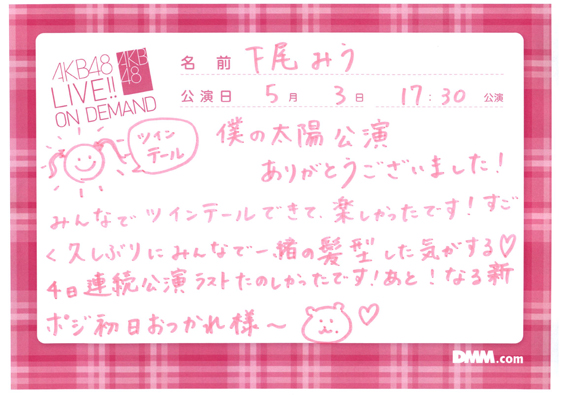 AKB48
LIVE!!
ON DEMAND
AKB
48
名前 下尾みう
公演日 5月 3日 17:30 公演
ツイン
テール
僕の太陽公演
ありがとうございました!
みんなでツインテールできて、楽しかったです!すご
く久しぶりにみんなで一緒の髪型した気がする♡
4日連続公演ラストたのしかったです!あと!なる新
ポジ初日おつかれ様〜 ♡
DMM.com